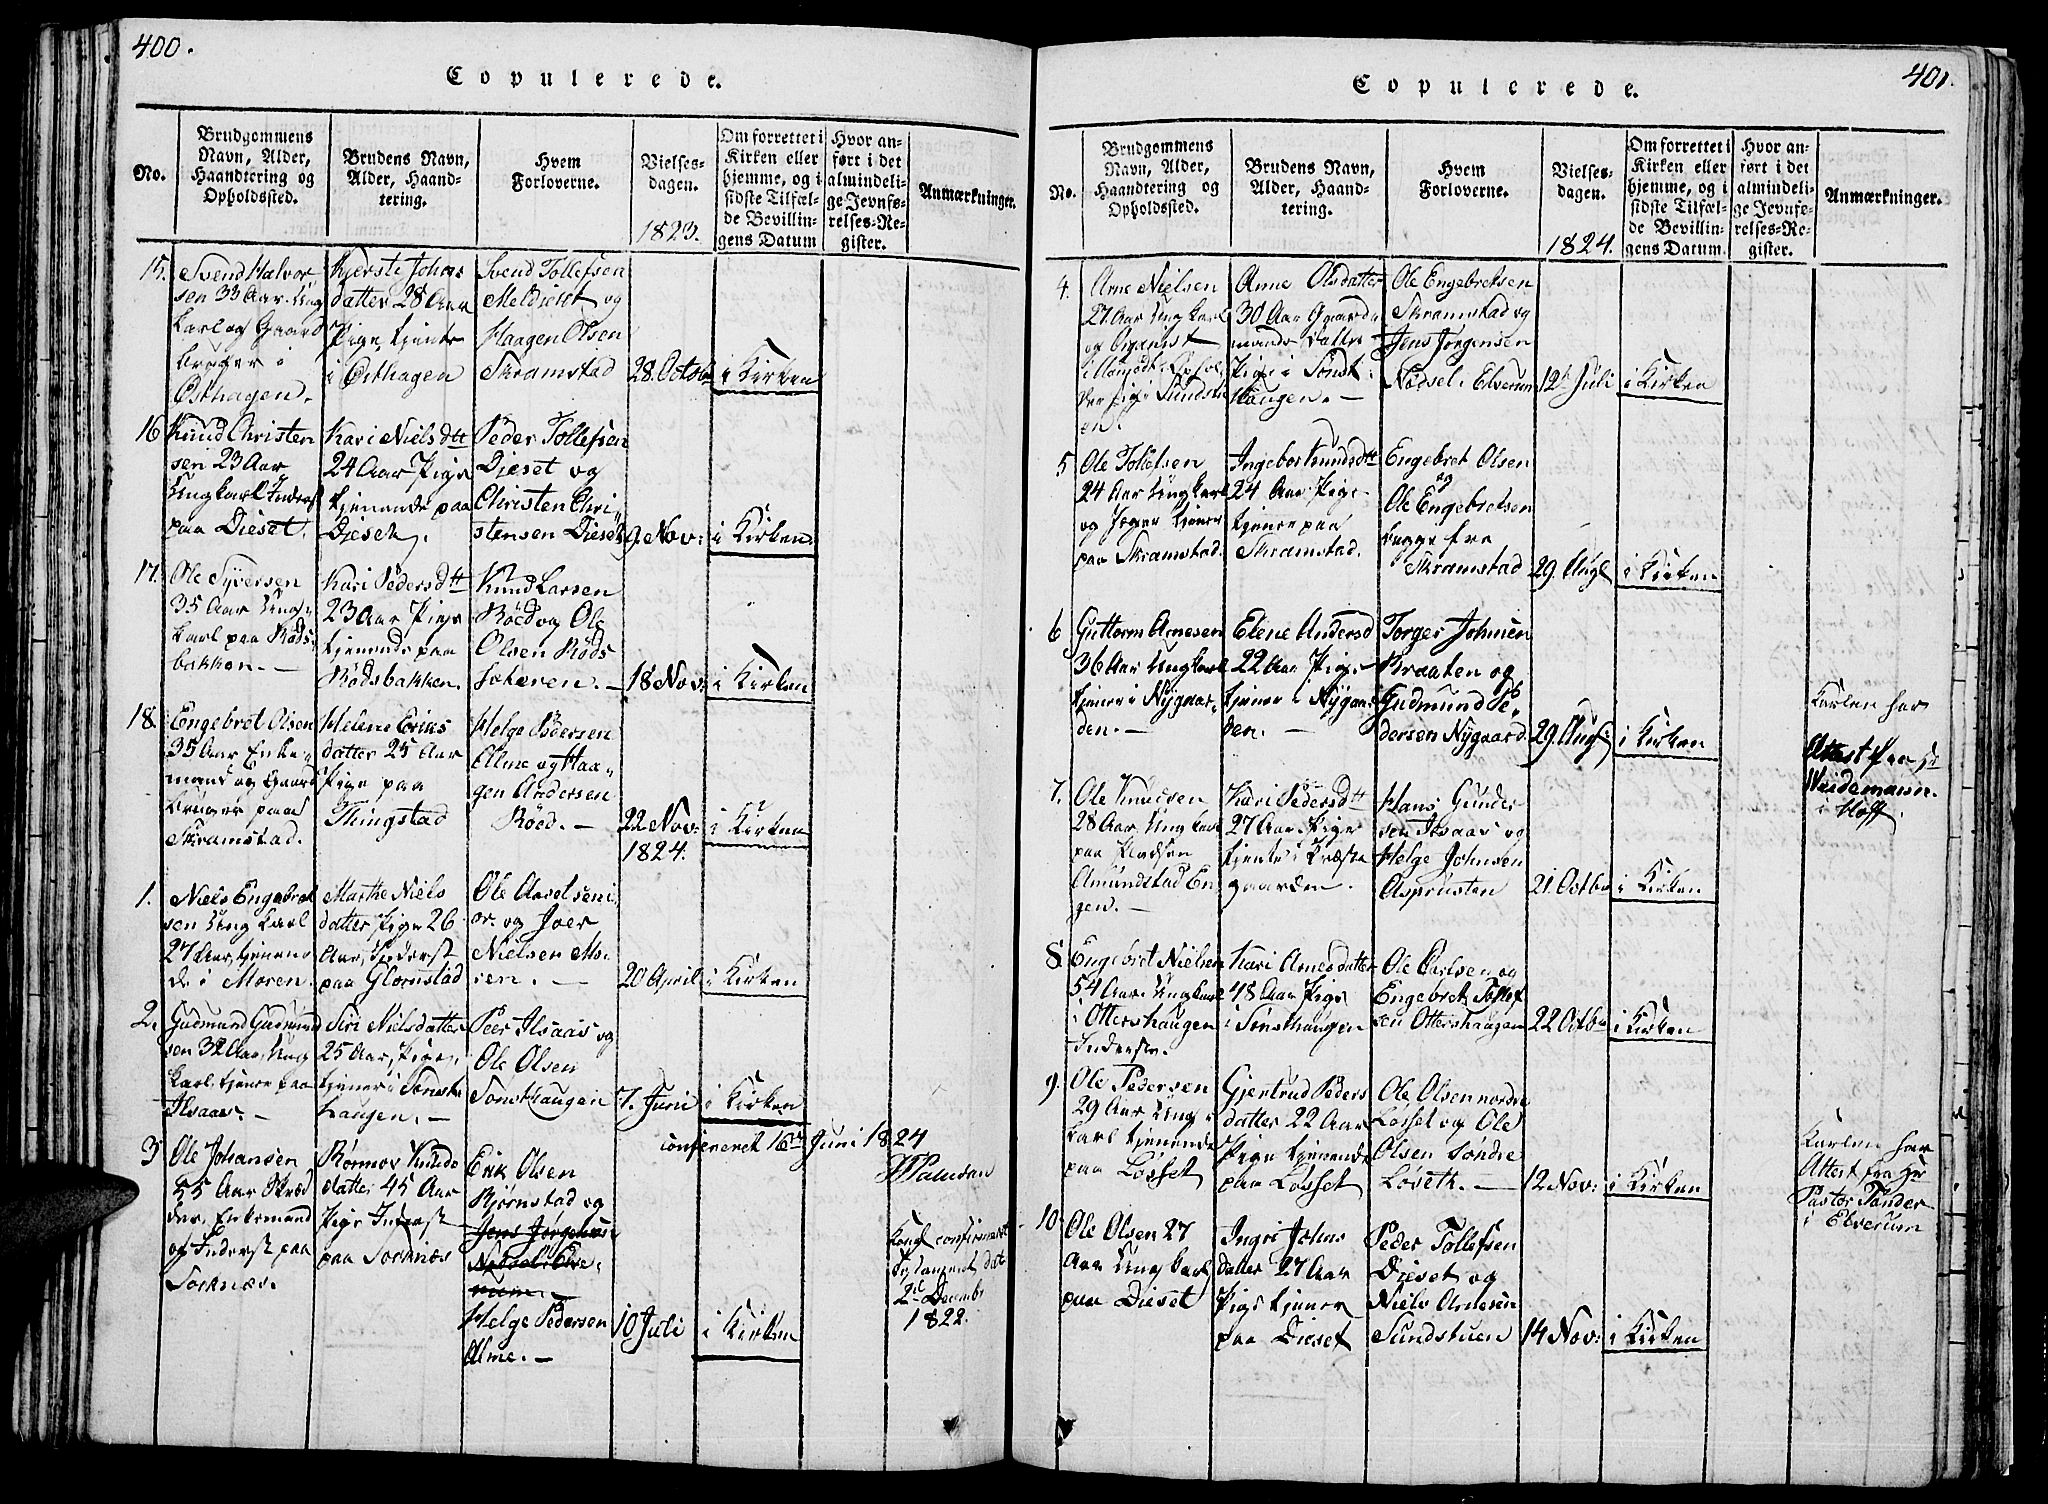 400.
Copulerede.
No.
Brudgommens
Navn, Alder,
Haandtering og
Opholdssted.
Brudens Navn,
Alder, Haand-
tering.
Hvem
Forloverne.
Vielses-
dagen.
1823.
Om forrettet i
Kirken eller
hjemme, og i
sidste Tilfæl-
de Bevillin-
gens Datum
Hvor an-
ført i det
almindeli-
ge Jevnfø-
relses-Re-
gister.
Anmærkninger.
15.
Svend Halvor
sen 33 Aar Ung
karl og Gaard
bruger i
Østhagen.
Kjersti Johns
datter 28 Aar
Pige, tjente
i Østhagen
Svend Tollefsen
Meldieset og
Haagen Olsen
Skramstad
28. Octob
i Kirken
16
Knud Christen
sen 23 Aar
Ungkarl Inderst
paa Dieset.
Kari Niels dtt
24 Aar Pige
tjenende paa
Djeset.
Peder Tollefsen
Djeset og
Christen Chri
stensen Dieset
9 Nov:
i Kirken
17.
Ole Syversen
35 Aar Ung
karl paa Røds
bakken.
Kari Peders dtt
23 Aar Pige
tjenende paa
Rødsbakken.
Knud Larsen
Röed og Ole
Olsen Röds
18 Nov:
i Kirken
18
Engebret Olsen
35 Aar Enke
mand og Gaard
bruger paa
Skramstad.
Helene Eriks
datter 25 Aar
Pige paa
Thingstad
Helge Pedersen
Alme og Haa
gen Andersen
Röed.
22 Nov:
i Kirken
1824.
1.
Niels Engebret
sen Ung karl
27 Aar, tjenen
de i Moren.
Marthe Niels
datter Pige 26
Aar, Inderst
paa Glomstad
Ole Aasetseni
or. og Joer
Nielsen Mo
ren.
20 April
i Kirken
2.
Gudmund Gudmund
sen 32 Aar, Ung
karl, tjener paa
Ilsaas.
Siri Nielsdatter
25 Aar, Pige,
tjener i Sønst
haugen.
Peer Ilsaas og
Ole Olsen
Sønsthaugen
7. Juni
i Kirken
confereret 16de Juni 1824
Paludan
3
Ole Johansen
55 Aar Skræd
der, Enkemand
og Inderst paa
Sorknæs.
Rønnov Knuds
datter 45 Aar
Pige Inderst
paa Sorknæs
Erik Olsen
Bjørnstad og
Jens Jørgensen
Nødsel i Elve
rum
Helge Pedersen
Alme.
10 Juli
i Kirken
Kongl confirmeret
Testament dat
2d Decembr
1822.
401.
Copulerede.
No.
Brudgommens
Navn, Alder,
Haandtering og
Opholdssted.
Brudens Navn,
Alder, Haand-
tering.
Hvem
Forloverne.
Vielses-
dagen.
1824.
Om forrettet i
Kirken eller
hjemme, og i
sidste Tilfæl-
de Bevillin-
gens Datum.
Hvor an-
ført i det
almindeli-
ge Jevnfø-
relses-Re-
gister.
Anmærkninger.
4.
Arne Nielsen
27 Aar Ungkarl
og Organist
en.
Anne Olsdatter
30 Aar Gaard
mands Datter
Pige i Sönst
haugen.
Ole Engebretsen
Skramstad og
Jens Jörgensen
Nødsel i Elverum
12t Juli
i Kirken
5
Ole Tollefsen
24 Aar Ungkarl
og Jæger tjener
paa Skramstad.
Ingebor Knudsdtt
24 Aar Pige
tjener paa
Skramstad.
Engebret Olsen
og
Ole Engebretsen
begge fra
Skramstad
29. Augt
i Kirken
6
Guttorm Arnesen
36 Aar Ungkarl
tjener i Nygaar
den.
Elene Andersd
22 Aar Pige
tjener i Nygaar
den.
Torger Johnsen
Braaten og
Gudmund Pe
dersen Nygaard
29. Aug:
i Kirken
Karlen har
Attest fra Hr
Weidemann
i Hoff.
7.
Ole Knudsen
28 Aar Ungkarl
paa Pladsen
Amundstad En
gen.
Kari Peders dtt
27 Aar Pige
tjente i Præste
gaarden.
Hans Gunder
sen Ilsaas og
Helge Johnsen
Asprusten
21. Octbr
i Kirken
8.
Engebret Nielsen
54 Aar Ungkarl
i Ottershaugen
Inderste.
Kari Arnesdatter
48 Aar Pige
i Sønsthaugen
Ole Carlsen og
Engebret Tollef
sen Ottershaugen
22 Octbr
i Kirken
9.
Ole Pedersen
29 Aar Ung
karl tjenende
paa Løsset
Gjertrud Peders
datter 22 Aar
Pige tjenende
paa Løsset
Ole Olsen nordre
Løsset og Ole
Olsen Søndre
Løseth.
12 Nov:
i Kirken
Karlen har
Attest fra Hr
Pastor Pander
i Elverum
10.
Ole Olsen 27
Aar Ungkarl
paa Dieset
Ingri Johns
datter 27 Aar
Pige tjener
paa Dieset
Peder Tollefsen
Dieset og
Niels Arnesen
Sundstuen
14 Nov:
i Kirken